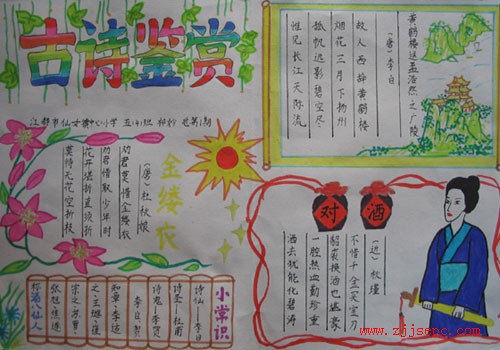 古诗鉴赏
江都市仙女镇中心小学 五(4)班 总第1期
黄鹤楼送孟浩然之广陵
(唐)李白
故人西辞黄鹤楼
烟花三月下扬州
孤帆远影碧空尽
惟见长江天际流
金缕衣
(唐)杜秋娘
劝君莫惜金缕衣
劝君惜取少年时
花开堪折直须折
莫待无花空折枝
对酒
(近)秋瑾
不惜千金买宝刀
貂裘换酒也堪豪
一腔热血勤珍重
洒去犹能化碧涛
小常识
诗仙—李白
诗圣—杜甫
诗鬼—李贺
李白、贺
知章、李适
之、王琎、崔
宗之、苏晋、
张旭、焦遂
称酒八仙人
www.zjjsepc.com